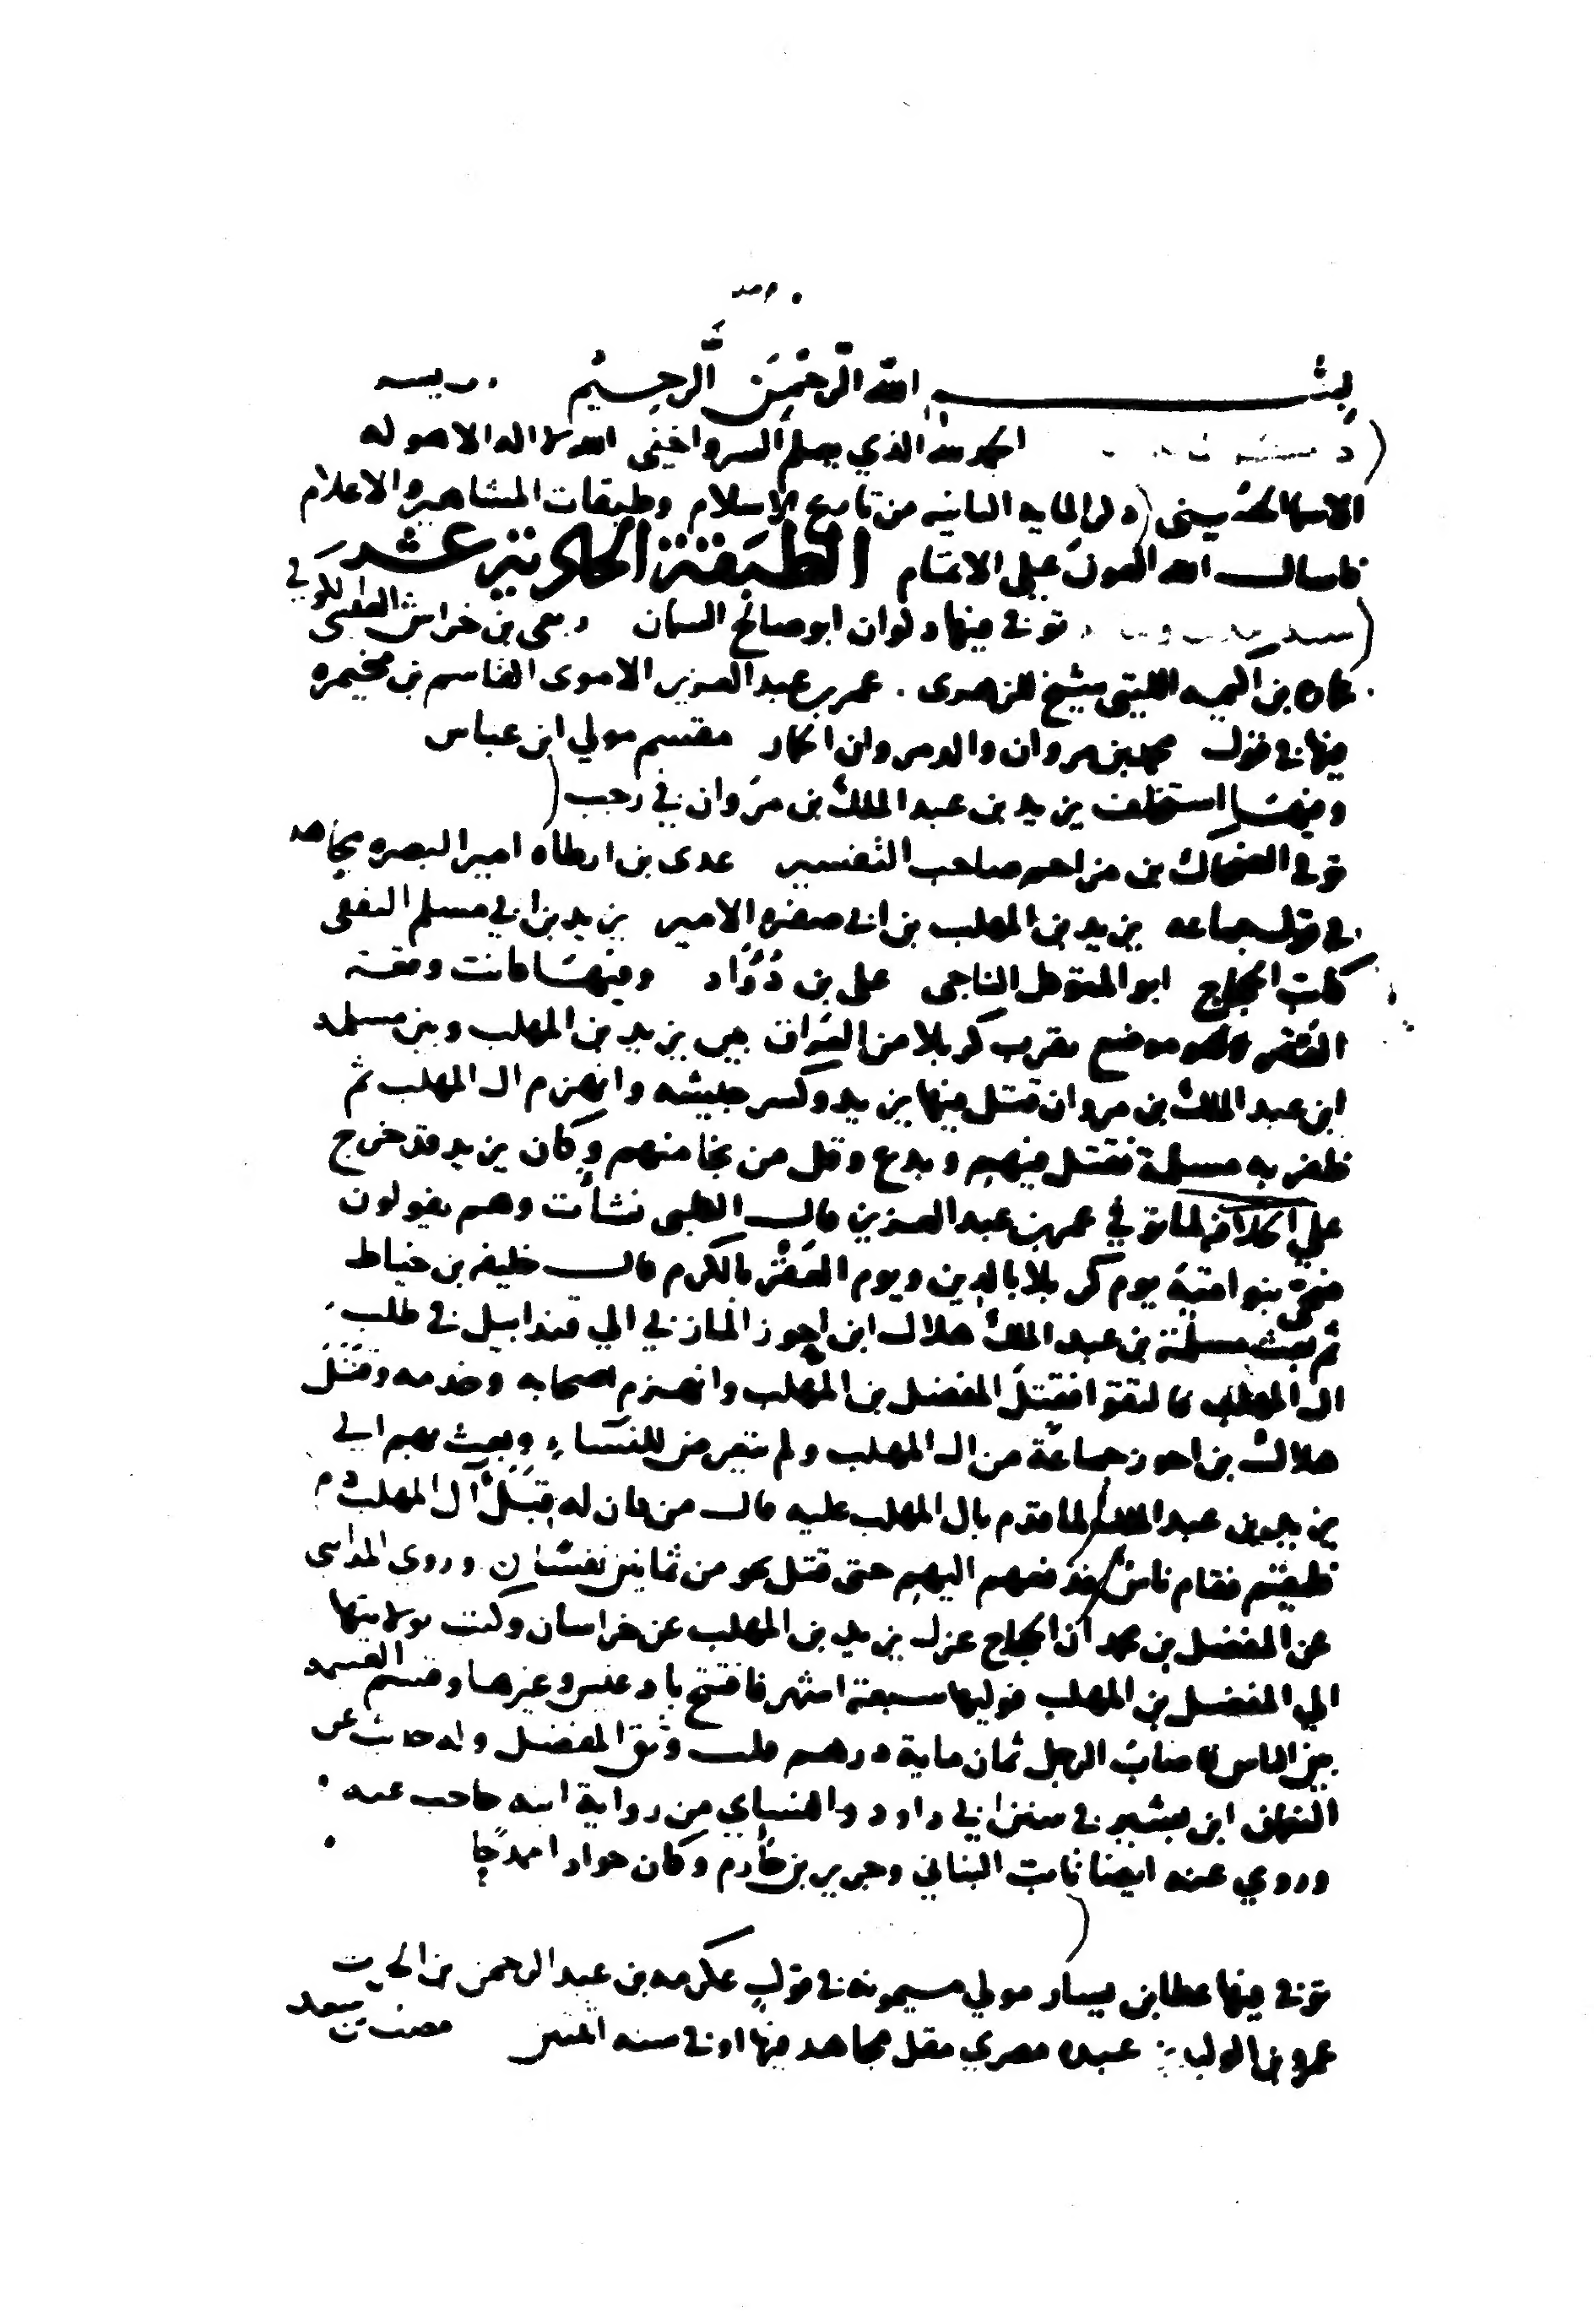 بسم الله الرحمن الرحيم
الحمد لله الذي يعلم السر واخفى الله لا اله الا هو له
الاسما الحسنى اول المايه الثانيه من تاريخ الاسلام وطبقات المشاهير والاعلام
فاسال الله العون على الاتمام الطبقة الحادية عشر
توفي فيها ذكوان ابو صالح السمان ربعي بن خراش الغطفاني الكوفي
عماره بن اكيمه الليثي شيخ للزهري . عمر بن عبد العزيز الاموي القاسم بن مخيمره
فيها في قول محمد بن مروان والد مروان الحمار مقسم مولي ابن عباس
وفيها استخلف يزيد بن عبد الملك بن مروان في رجب
توفي الضحاك بن مزاحم صاحب التفسير عدي بن ارطاه امير البصره مجاهد
في قول جماعه يزيد بن المهلب بن ابي صفره الامير يزيد بن ابي مسلم الثقفي
كاتب الحجاج ابو المتوكل الناجي علي بن دؤاد وفيها كانت وقعة
العقر وهو موضع بقرب كربلا من العراق بين يزيد بن المهلب وبين مسلمه
ابن عبد الملك بن مروان قتل فيها يزيد وكسر جيشه وانهزم ال المهلب ثم
ظفر به مسلمة فقتل فيهم وبدع وقل من نجا منهم وكان يزيد قد خرج
علي الخلافة لما توفي عمر بن عبد العزيز قال الكلبي نشأت وهم يقولون
ضحى بنو امية يوم كربلا بالدين ويوم العقر بالكرم قال خليفه بن خياط
ثم بعث مسلمة بن عبد الملك هلال ابن احوز المازني الي قندابيل في طلب
ال المهلب فالتقوا فقتل المفضل بن المهلب وانهزم اصحابه وخدمه وقتل
هلال بن احوز جماعة من ال المهلب ولم يتعرض للنساء وبعث بهم الي
يزيد بن عبد الملك لما قدم بال المهلب عليه قال من كان له قبل آل المهلب دم
فليقم فقام ناس فدفعهم اليهم حتى قتل نحو من ثمانين نفسا وروي المدايني
عن المفضل بن محمد ان الحجاج عزل يزيد بن المهلب عن خراسان وكتب بولايتها
الي المفضل بن المهلب فوليها سبعة اشهر فافتتح بادغيس وغيرها وقسم الغنيمه
بين الناس فاصاب الرجل ثمان ماية درهم قلت وثق المفضل وله حديث عن
النعمان ابن بشير في سنن ابي داود والنسائي من رواية ابنه حاجب عنه
وروي عنه ايضا ثابت البناني وجرير بن حازم وكان جوادا ممدحا
توفي فيها عطا بن يسار مولي ميمونه في قول عكرمه بن عبد الرحمن بن الحرث
عبده مصري مقل مجاهد فيها او في سنه اثنتين مصعب بن سعد